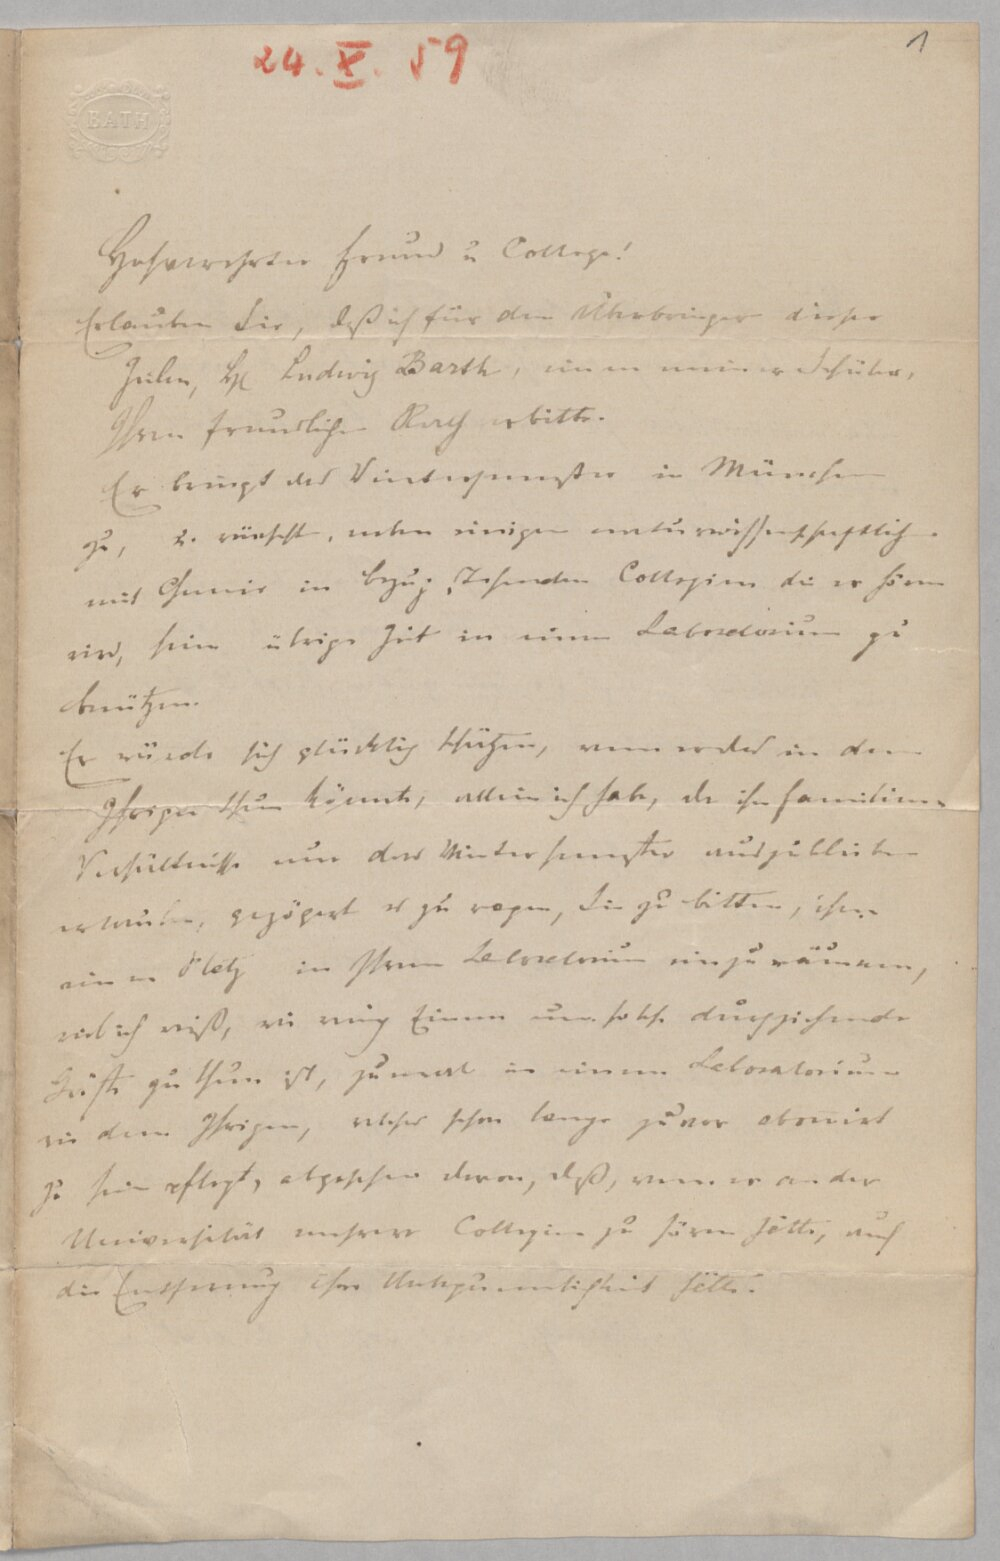 24. X. 59
1
BATH
Hochverehrter Freund u College!
Erlauben Sie, daß ich für den Überbringer dieser
Zeilen, H Ludwig Barth, einen meiner Schüler,
Ihren freundlichen Rath erbitte.
Er bringt das Wintersemester in München
zu, u. wünscht, neben einigen naturwissenschaftlichen
mit Chemie in bezug stehenden Collegien die er hören
wird, seine übrige Zeit in einem Laboratorium zu
benützen.
Er würde sich glücklich schätzen, wenn er das in dem
Ihrigen thun könnte, allein ich habe, da ihm Familien-
Verhältnisse nur das Wintersemester auszubleiben
erlauben, gezögert es zu wagen, Sie zu bitten, ihm
einen Platz in Ihrem Laboratorium einzuräumen,
weil ich weiß, wie wenig Einem um solche durchziehende
Gäste zu thun ist, zumal in einem Laboratorium
wie dem Ihrigen, welches schon lange zuvor abonnirt
zu sein pflegt, abgesehen davon, daß, wenn er an der
Universität mehrere Collegien zu hören hätte, auch
die Entfernung ihre Unbequemlichkeit hätte.